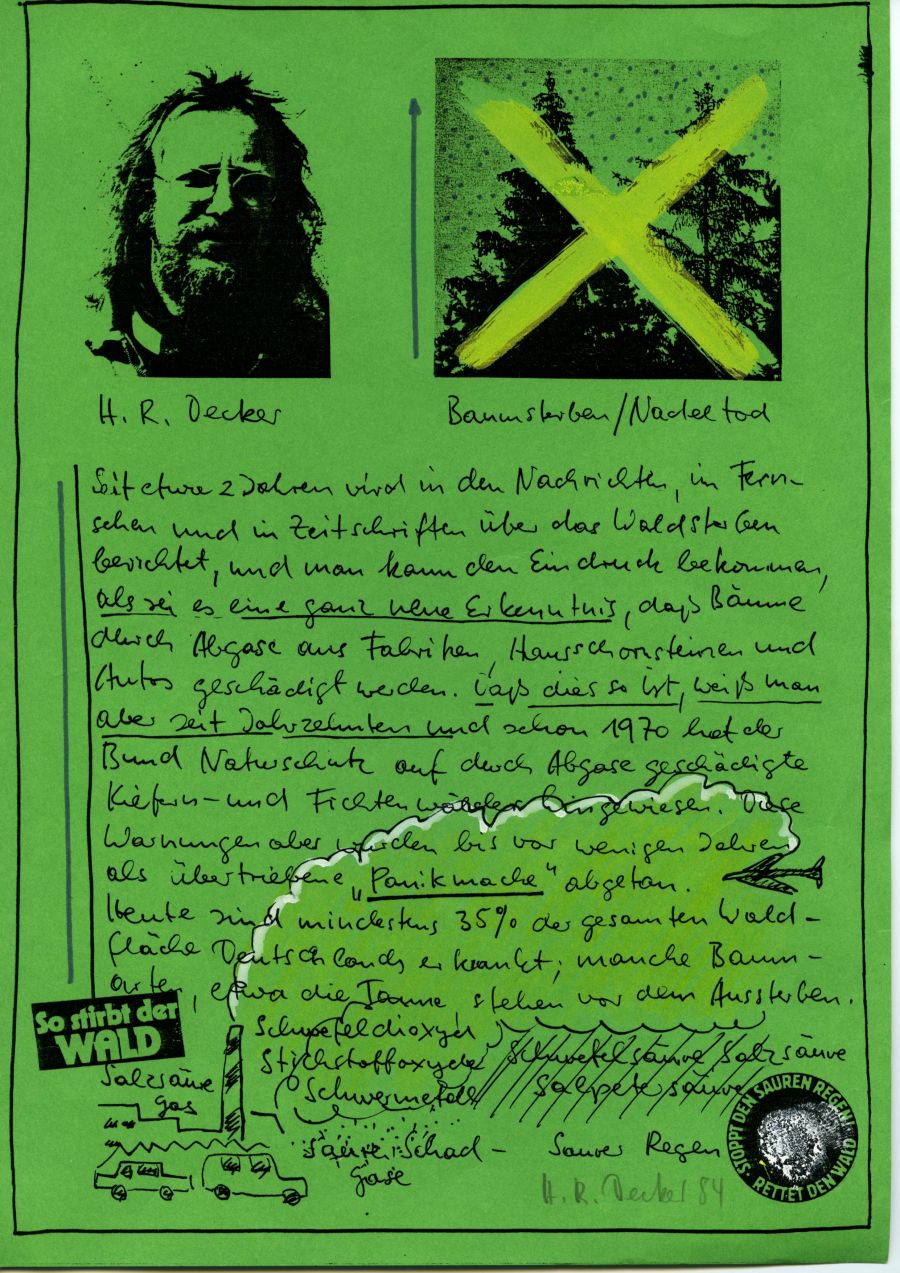 H. R. Decker
Baumsterben/Nadeltod
Seit etwa 2 Jahren wird in den Nachrichten, im Fern-
sehen und in Zeitschriften über das Waldsterben
berichtet, und man kann den Eindruck bekommen,
als sei es eine ganz neue Erkenntnis, daß Bäume
durch Abgase aus Fabriken, Hausschornsteinen und
Autos geschädigt werden. Daß dies so ist, weiß man
aber seit Jahrzehnten und schon 1970 hat der
Bund Naturschutz auf durch Abgase geschädigte
Kiefern- und Fichtenwälder hingewiesen. Diese
Warnungen aber wurden bis vor wenigen Jahren
als übertriebene „Panikmache" abgetan.
Heute sind mindestens 35% der gesamten Wald-
fläche Deutschlands erkrankt; manche Baum-
arten, etwa die Tanne, stehen vor dem Aussterben.
So stirbt der
WALD
Schwefeldioxyd
Stickstoffoxyde Schwefelsäure Salzsäure
Salzsäure
Gas
Schwermetalle Salpetersäure
Saure Schad-
Gase
Saurer Regen
STOPPT DEN SAUREN REGEN!
RETTET DEN WALD
H. R. Decker 84